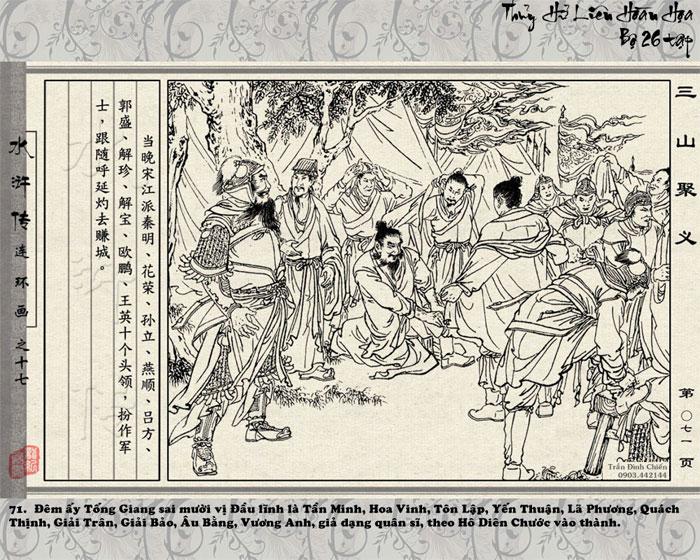 Thủy Hử Liên Hoàn Họa
Bộ 26 tập
三山聚义
第〇七一页
当晚宋江派秦明、花荣、孙立、燕顺、吕方、
郭盛、解珍、解宝、欧鹏、王英十个头领，扮作军
士，跟随呼延灼去赚城。
水浒传连环画之十七
Trần Đình Chiến
0903.442144
71. Đêm ấy Tống Giang sai mười vị Đầu lĩnh là Tần Minh, Hoa Vinh, Tôn Lập, Yến Thuận, Lã Phương, Quách
Thịnh, Giải Trân, Giải Bảo, Âu Bằng, Vương Anh, giả dạng quân sĩ, theo Hô Diên Chước vào thành.